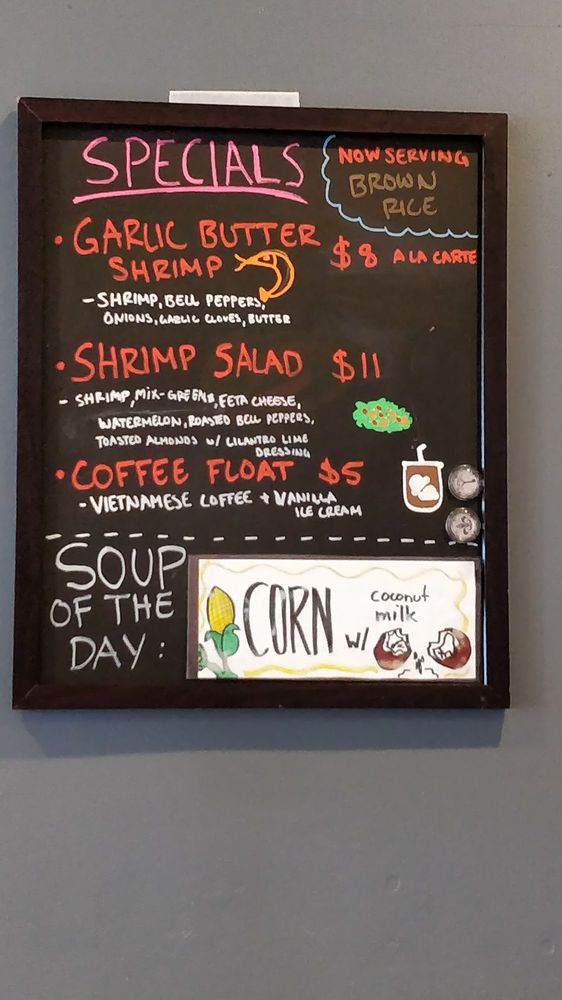 SPECIALS
NOW SERVING
BROWN
RICE
• GARLIC BUTTER
SHRIMP
$8 A LA CARTE
- SHRIMP, BELL PEPPERS,
ONIONS, GARLIC CLOVES, BUTTER
• SHRIMP SALAD $11
- SHRIMP, MIX-GREENS, FETA CHEESE,
WATERMELON, ROASTED BELL PEPPERS,
TOASTED ALMONDS W/ CILANTRO LIME
DRESSING
• COFFEE FLOAT $5
- VIETNAMESE COFFEE + VANILLA
ICE CREAM
SOUP
OF THE
DAY:
CORN W/
coconut
milk